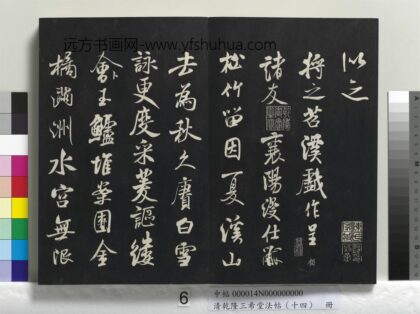 远方书画网-www.yfshuhua.com
以之
將之苕溪戲作呈
諸友 襄陽漫仕黻
松竹留因夏溪山
去為秋久賡白雪
詠更度采菱謳縷
會玉鱸堆案團金
橘滿洲水宮無限
6
中帖 000014N000000000
清乾隆三希堂法帖（十四） 册